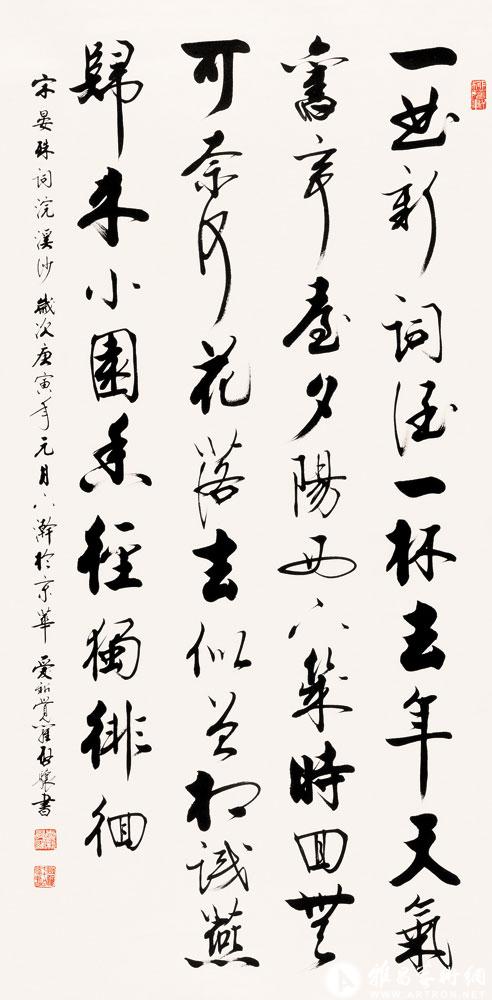 一曲新詞酒一杯去年天氣
舊亭臺夕陽西下幾時回無
可奈何花落去似曾相識燕
歸來小園香徑獨徘徊
宋晏殊詞浣溪沙歲次庚寅年元月下澣於京華愛新覺羅啟驤書
雅昌藝術網
WWW.ARTRON.NET